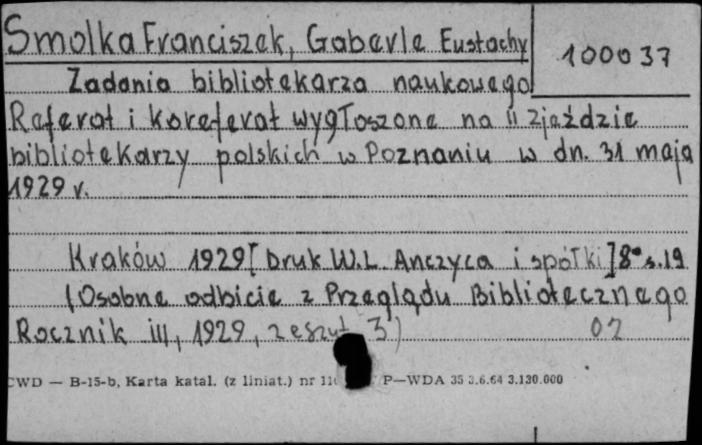 Smolka Franciszek, Gaberle Eustachy
100037
Zadania bibliotekarza naukowego
Referat i koreferat wygłoszone na II zjeździe
bibliotekarzy polskich w Poznaniu w dn. 31 maja
1929 r.
Kraków 1929 [Druk W.L. Anczyca i spółki] 8° s.19
(Osobne odbicie z Przeglądu Bibliotecznego
Rocznik III, 1929, zeszyt 3)
02
CWD — B-15-b, Karta katal. (z liniat.) nr P—WDA 35 3.6.64 3.130.000